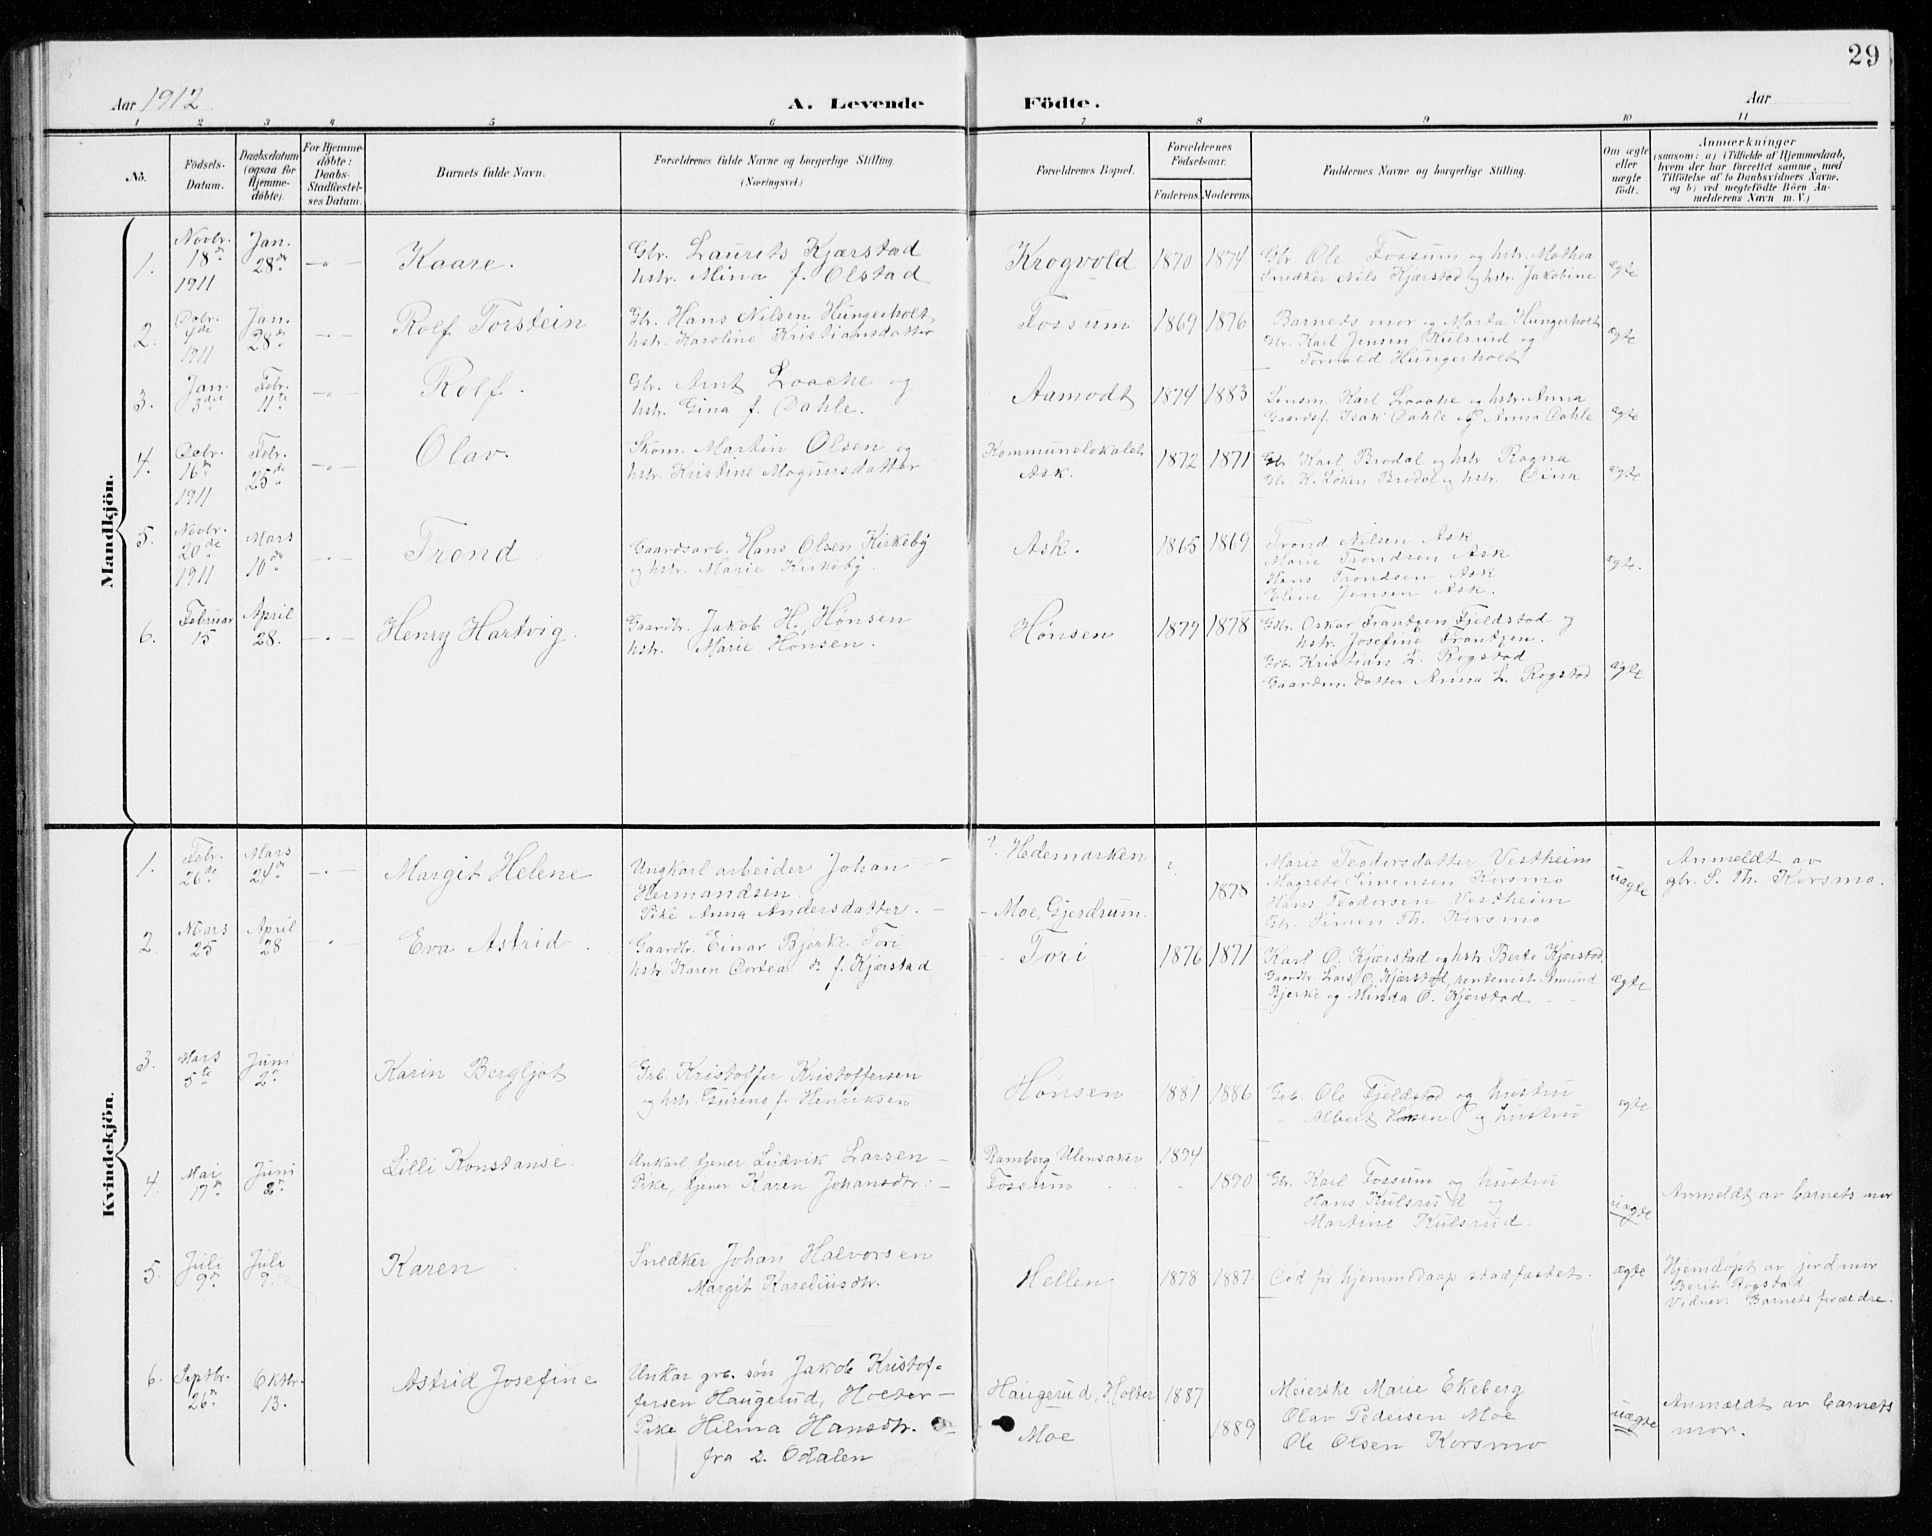 29
Aar 1912
A. Levende Födte.
Aar
1 2 3 4 5 6 7 8 9 10 11
No.
Födsels-
Datum.
Daabsdatum
(ogsaa for
Hjemme-
døbte).
For Hjemme-
døbte:
Daabs-
Stadfæstel-
ses Datum.
Barnets fulde Navn.
Forældrenes fulde Navne og borgerlige Stilling.
(Næringsvei.)
Forældrenes Bopæl.
Forældrenes
Fødselsaar.
Faderens. Moderens.
Faddernes Navne og borgerlige Stilling.
Om ægte
eller
uægte
født.
Anmærkninger
(saasom: a) i Tilfælde af Hjemmedaab,
hvem der har forrettet samme, med
Tilføielse af to Daabsvidners Navne,
og b) ved uægtefödte Börn An-
melderens Navn m. V.)
Mandkjön.
1.
Novbr.
18de
1911
Jan.
28de
Kaare.
Gbr. Laurits Kjærstad
hstr. Mina f. Olstad
Krogvold
1870 1874
Gbr. Ole Fossum og hstr. Mathea
Snedker Nils Kjærstad og hstr. Jakobine
ægte
2.
Debr.
9de
1911
Jan.
28de
Rolf Torstein
Gbr. Hans Nilsen Hungerholt
hstr. Karoline Kristiansdatter
Fossum
1869 1876
Barnets mor og Marta Hungerholt
Gbr. Karl Jensen Kulsrud og
Torvald Hungerholt
ægte
3.
Jan.
3die
Febr.
11te
Rolf.
Gbr. Arnt Laache og
hstr. Gina f. Dahle.
Aamodt
1874 1883
Lensm. Karl Laache og hstr. Anna
Gaardsf. Isak Dahle og Anna Dahle
ægte
4.
Debr.
16de
1911
Febr.
25de
Olav.
Skom. Martin Olsen og
hstr. Kristine Magnusdatter
Kommunelokalet
Ask.
1872 1871
Gbr. Karl Brodal og hstr. Ragna
Gbr. K. Løken Brodal og hstr. Dina
ægte
5.
Novbr.
20de
1911
Mars
10de
Trond
Gaardsarb. Hans Olsen Kirkeby
og hstr. Marie Kirkeby.
Ask.
1865 1869
Trond Nilsen Ask
Marie Trondsen Ask
Hans Trondsen Ask
Eline Jensen Ask.
ægte.
6.
Februar
15
April
28.
Henry Hartvig.
Gaardbr. Jakob H. Hønsen
hstr. Marie Hønsen.
Hønsen
1879 1878
Gbr. Oskar Frantzen Fjeldstad og
hstr. Josefine Frantzen.
Gdb. Kristian L. Rogstad
Gaardm. datter Anna L. Rogstad
ægte
Kvindekjön.
1.
Febr.
26de
Mars
24de
Margit Helene
Ungkarl arbeider Johan
Hermandsen.
Pike Anna Andersdatter.
? Hedemarken
Moe, Gjerdrum.
?
1878
Marie Teodorsdatter Vestheim
Magrete Simensen Korsmo
Hans Teodorsen Vestheim
Gbr. Simen Th. Korsmo
uægte
Anmeldt av
gbr. S. Th. Korsmo.
2.
Mars
25
April
28
Eva Astrid
Gaardbr. Einar Bjerke Tori
hstr Karen Dortea f. Kjærstad
Tori
1876 1871
Karl O. Kjærstad og hstr. Berte Kjærstad
Gaardbr. Lars O. Kjærstad, rentenist Amund
Bjerke og Minda O. Kjærstad
ægte
3.
Mars
5te
Juni
2n
Karin Bergljot
Grb. Kristoffer Kristoffersen
og hstr. Gurine f. Henriksen
Hønsen
1881 1886
Grb. Ole Fjeldstad og hustru
Albert Hønsen og hustru
ægte
4.
Mai
17n
Juni
2n
Lilli Konstanse.
Unkarl tjener Ludvik Larsen
Pike, tjener Karen Johansdtr.
Ramberg Ulensaker
Fossum
1894
1890
Gbr. Karl Fossum og hustru
Hans Kulsrud og
Martine Kulsrud.
uægte
Anmeldt av barnets mor
5.
Juli
9n
Juli
9.
Karen
Snedker Johan Halvorsen
Margit Kareliusdtr.
Hellen
1878 1887.
Død før hjemmedaap stadfæstet.
ægte
Hjemdøpt av jordmor
Berit Rogstad
Vidner: Barnets forældre.
6.
Septbr.
26n
Oktbr.
13.
Astrid Josefine
Unkar grb. søn Jakob Kristof-
fersen Haugerud, Holter
Pike Hilma Hansdtr.
fra s. Odalen
Haugerud, Holter
Moe
1887
1889
Meierske Marie Ekeberg
Olav Pedersen Moe
Ole Olsen Korsmo
uægte
Anmældt av barnets
mor.